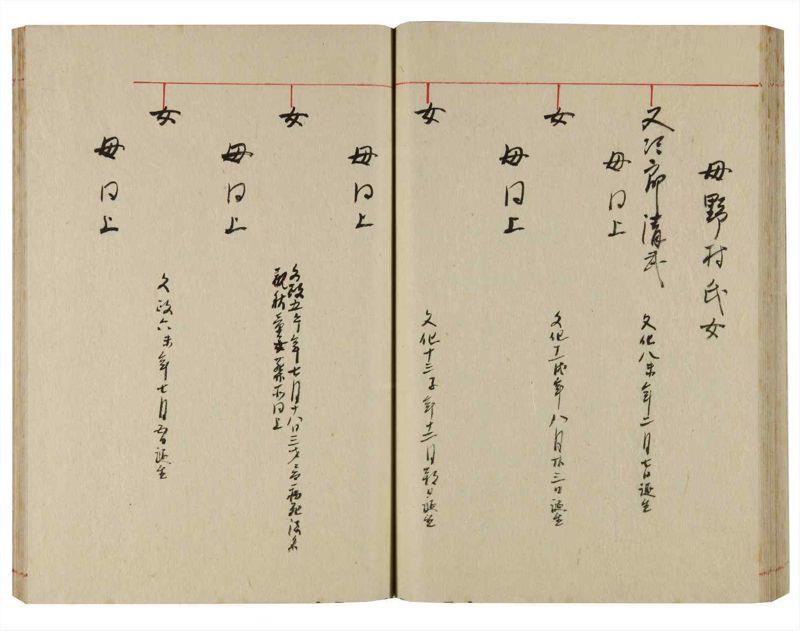 母野村氏女
又次郎清武
母同上
文化八未年二月七日誕生
女
母同上
文化十一戌年八月廿三日誕生
女
母同上
文化十三子年十二月朔日誕生
女
母同上
文政五午年七月十八日三才ニ而病死法名
秋童女葬所同上
女
母同上
文政六未年七月五日誕生